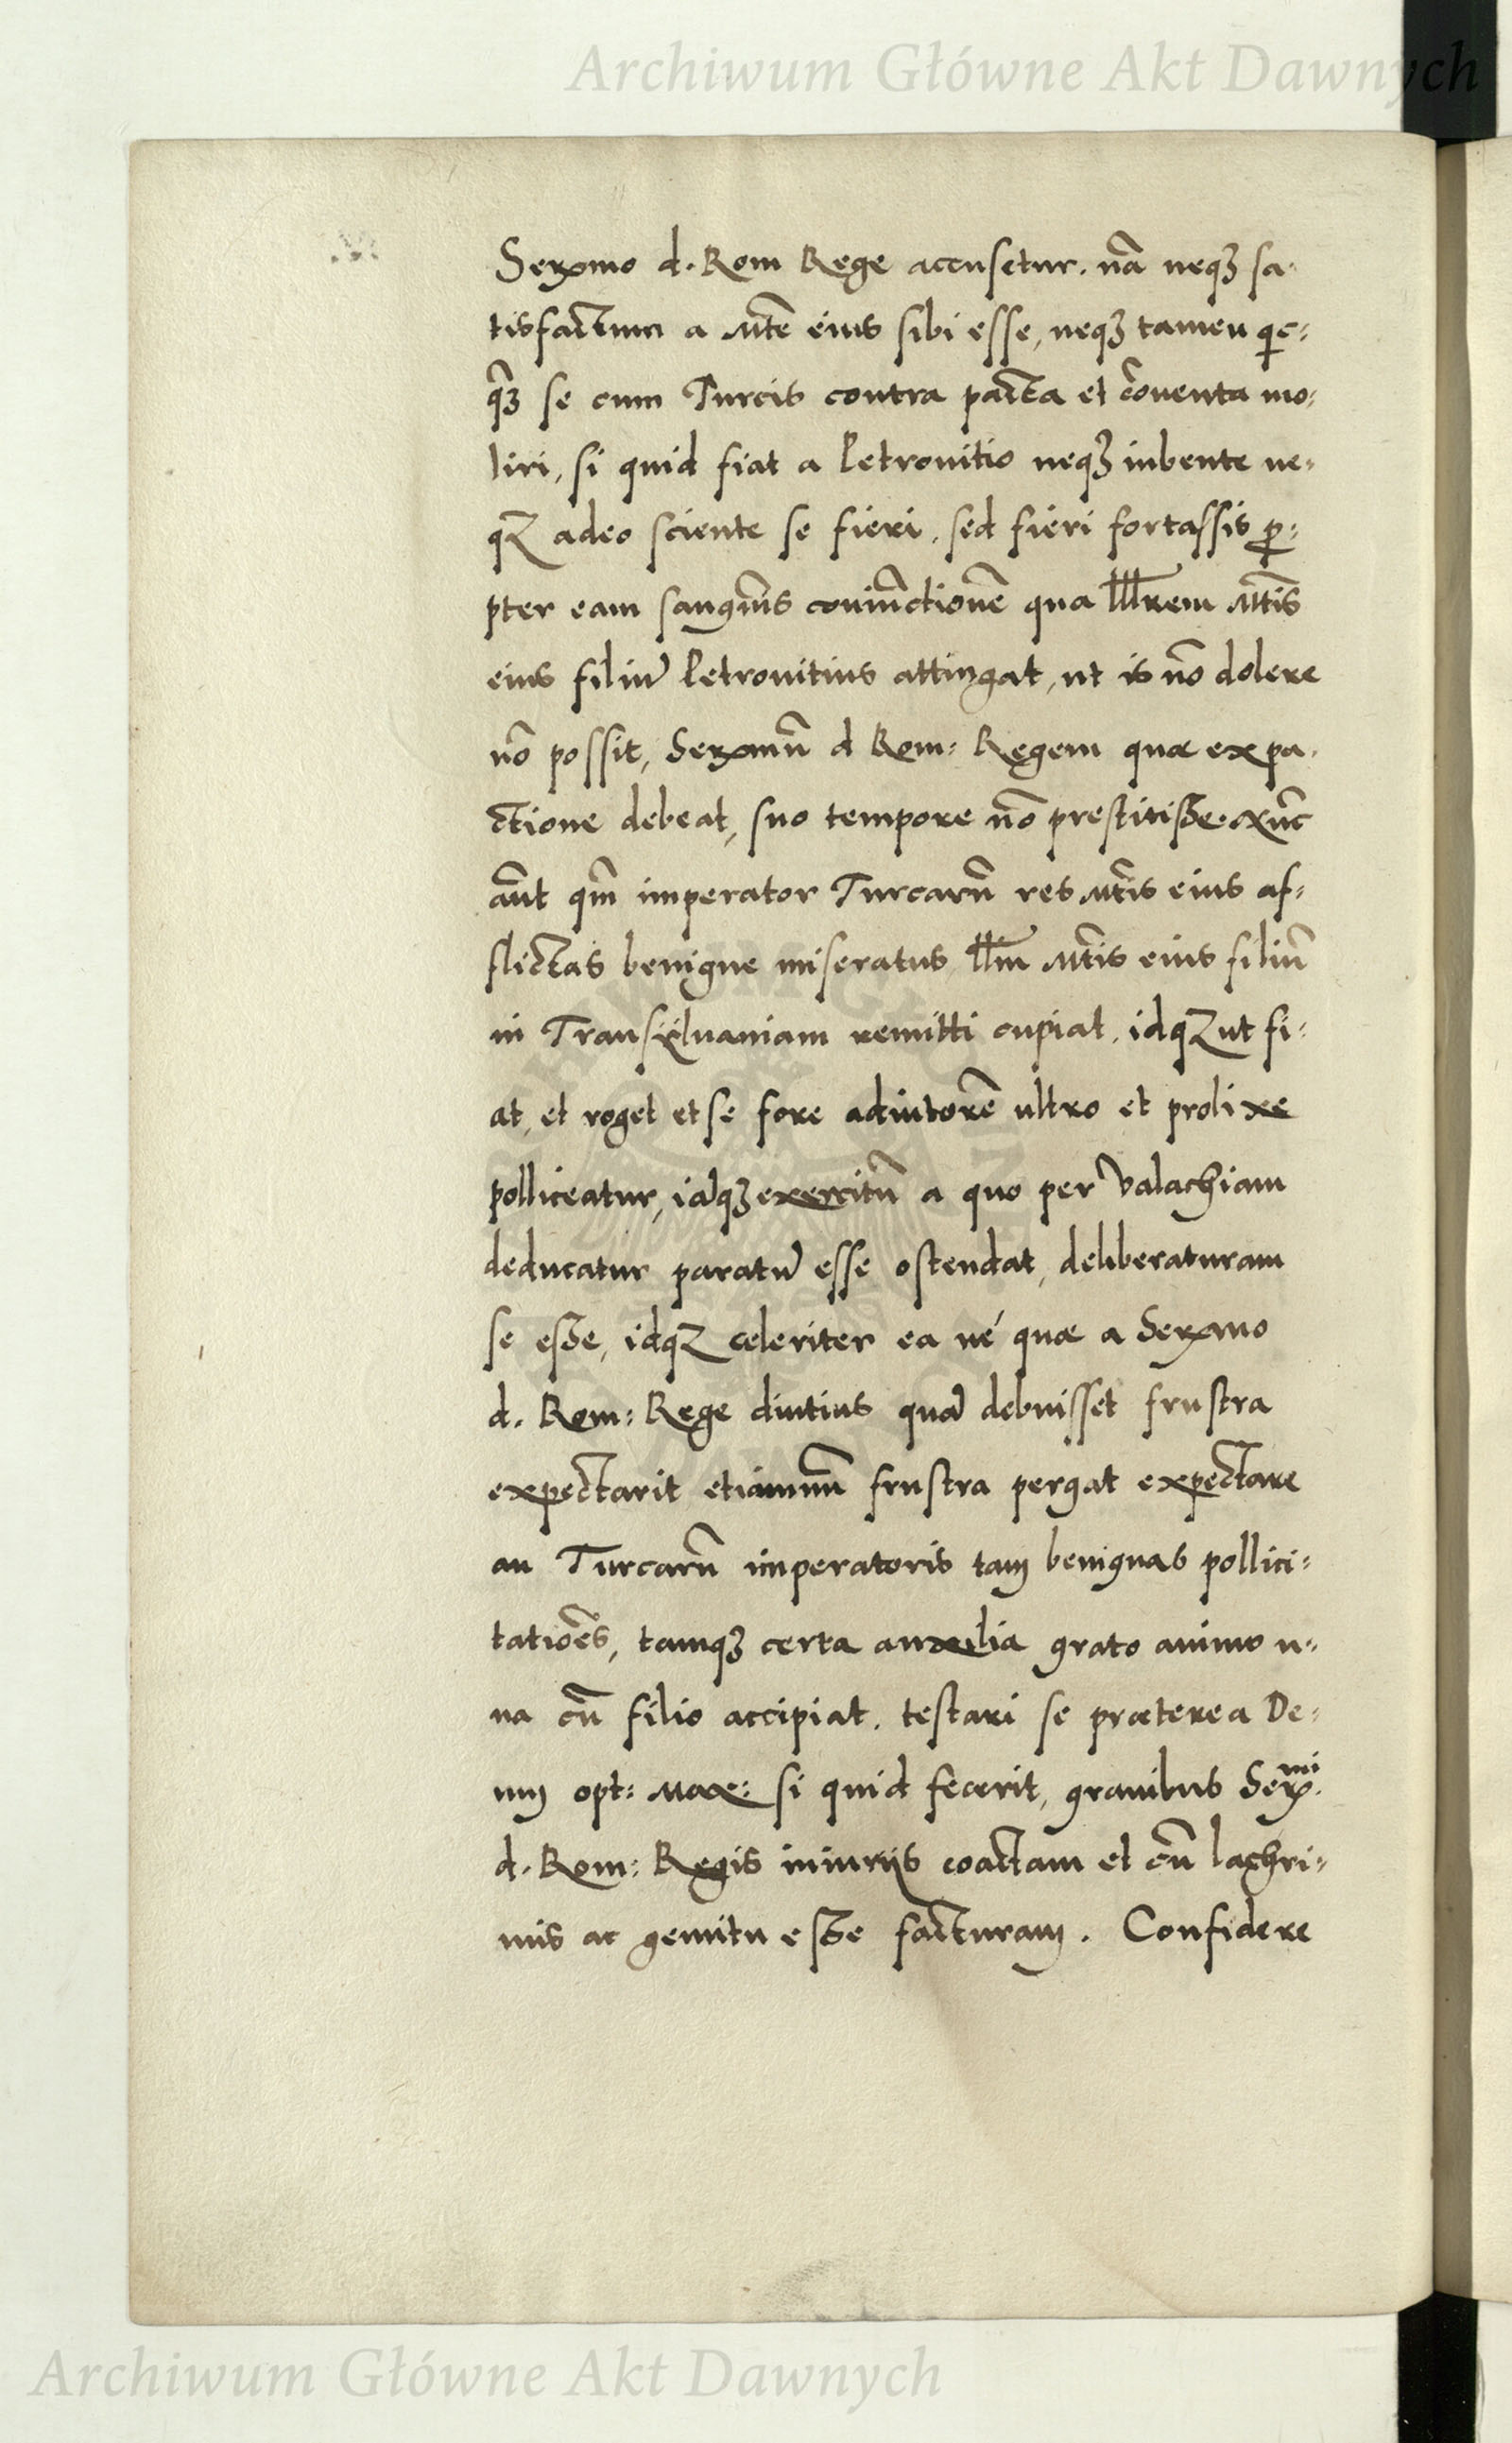 Archiwum Główne Akt Dawnych
Serx̃mo d. Rom Rege accusetur. nã neqꝫ sa-
tisfactum a Mte eius sibi esse, neqꝫ tamen qic-
q̃ꝫ se cum Turcis contra pacta et cõventa mo-
liri, si quid fiat a Petrovitio neqꝫ iubente ne-
qꝫ adeo sciente se fieri, sed fieri fortassis ꝓ-
pter eam sanguĩs coniũctionẽ qua Illrem Mtis
eius filiũ Petrovitius attingat, ut is nõ dolere
nõ possit, Serx̃mũ d Rom: Regem quæ ex pa-
ctione debeat, suo tempore nõ prestitisse. Nũc
aũt qm̃ imperator Turcarũ res Mtis eius af-
flictas benigne miseratus, Illm̃ Mtis eius filiũ
in Transÿlvaniam remitti cupiat, idqꝫ ut fi-
at, et roget et se fore adiutorẽ ultro et prolixe
polliceatur, iãqꝫ exercitũ a quo per Valachiam
deducatur paratũ esse ostendat, deliberaturam
se esse, idqꝫ celeriter ea né quæ a Serx̃mo
d. Rom: Rege diutius quã debuisset frustra
expectarit etiamnũ frustra pergat expectare
an Turcarũ imperatoris tam benignas pollici-
tatiões, tamqꝫ certa auxilia grato animo u-
na cũ filio accipiat. testari se præterea De-
um opt: Max: si quid fecerit, gravibus Serx.mi
d. Rom: Regis iniurijs coactam et cũ lachri-
mis ac gemitu esse facturam. Confidere
Archiwum Główne Akt Dawnych